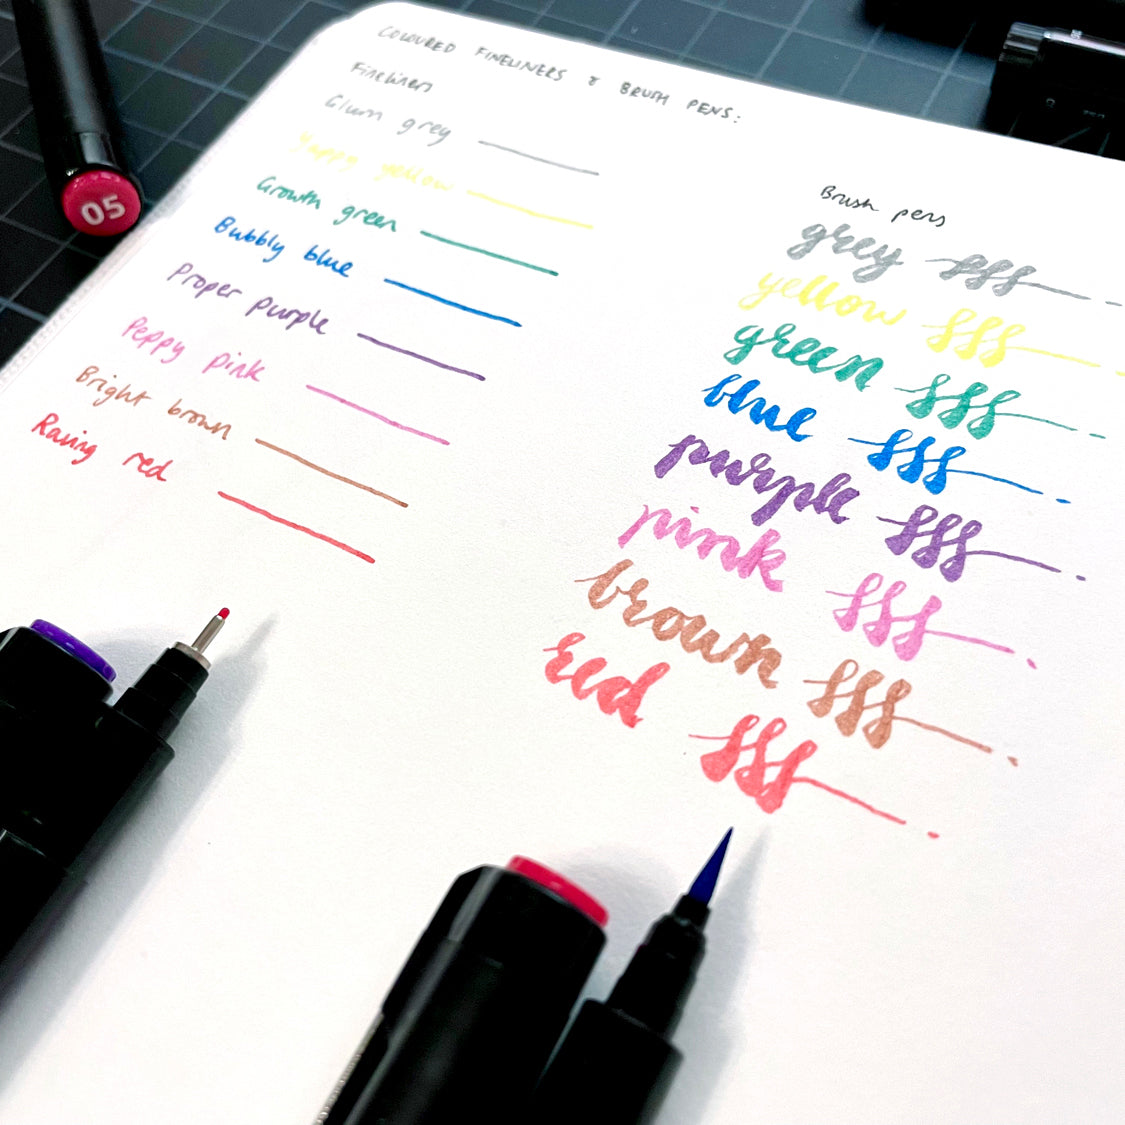 COLOURED FINELINERS & BRUSH PENS:
Fineliners
Glum grey
Happy yellow
Growth green
Bubbly blue
Proper purple
Peppy pink
Bright brown
Raving red
Brush pens
grey
yellow
green
blue
purple
pink
brown
red
05